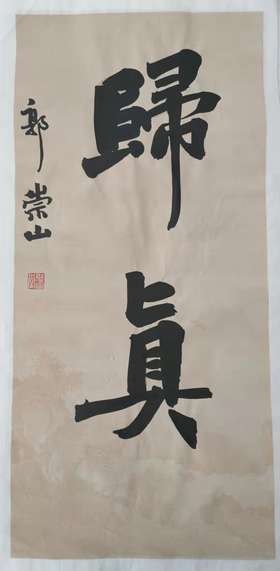 歸眞
郭崇山